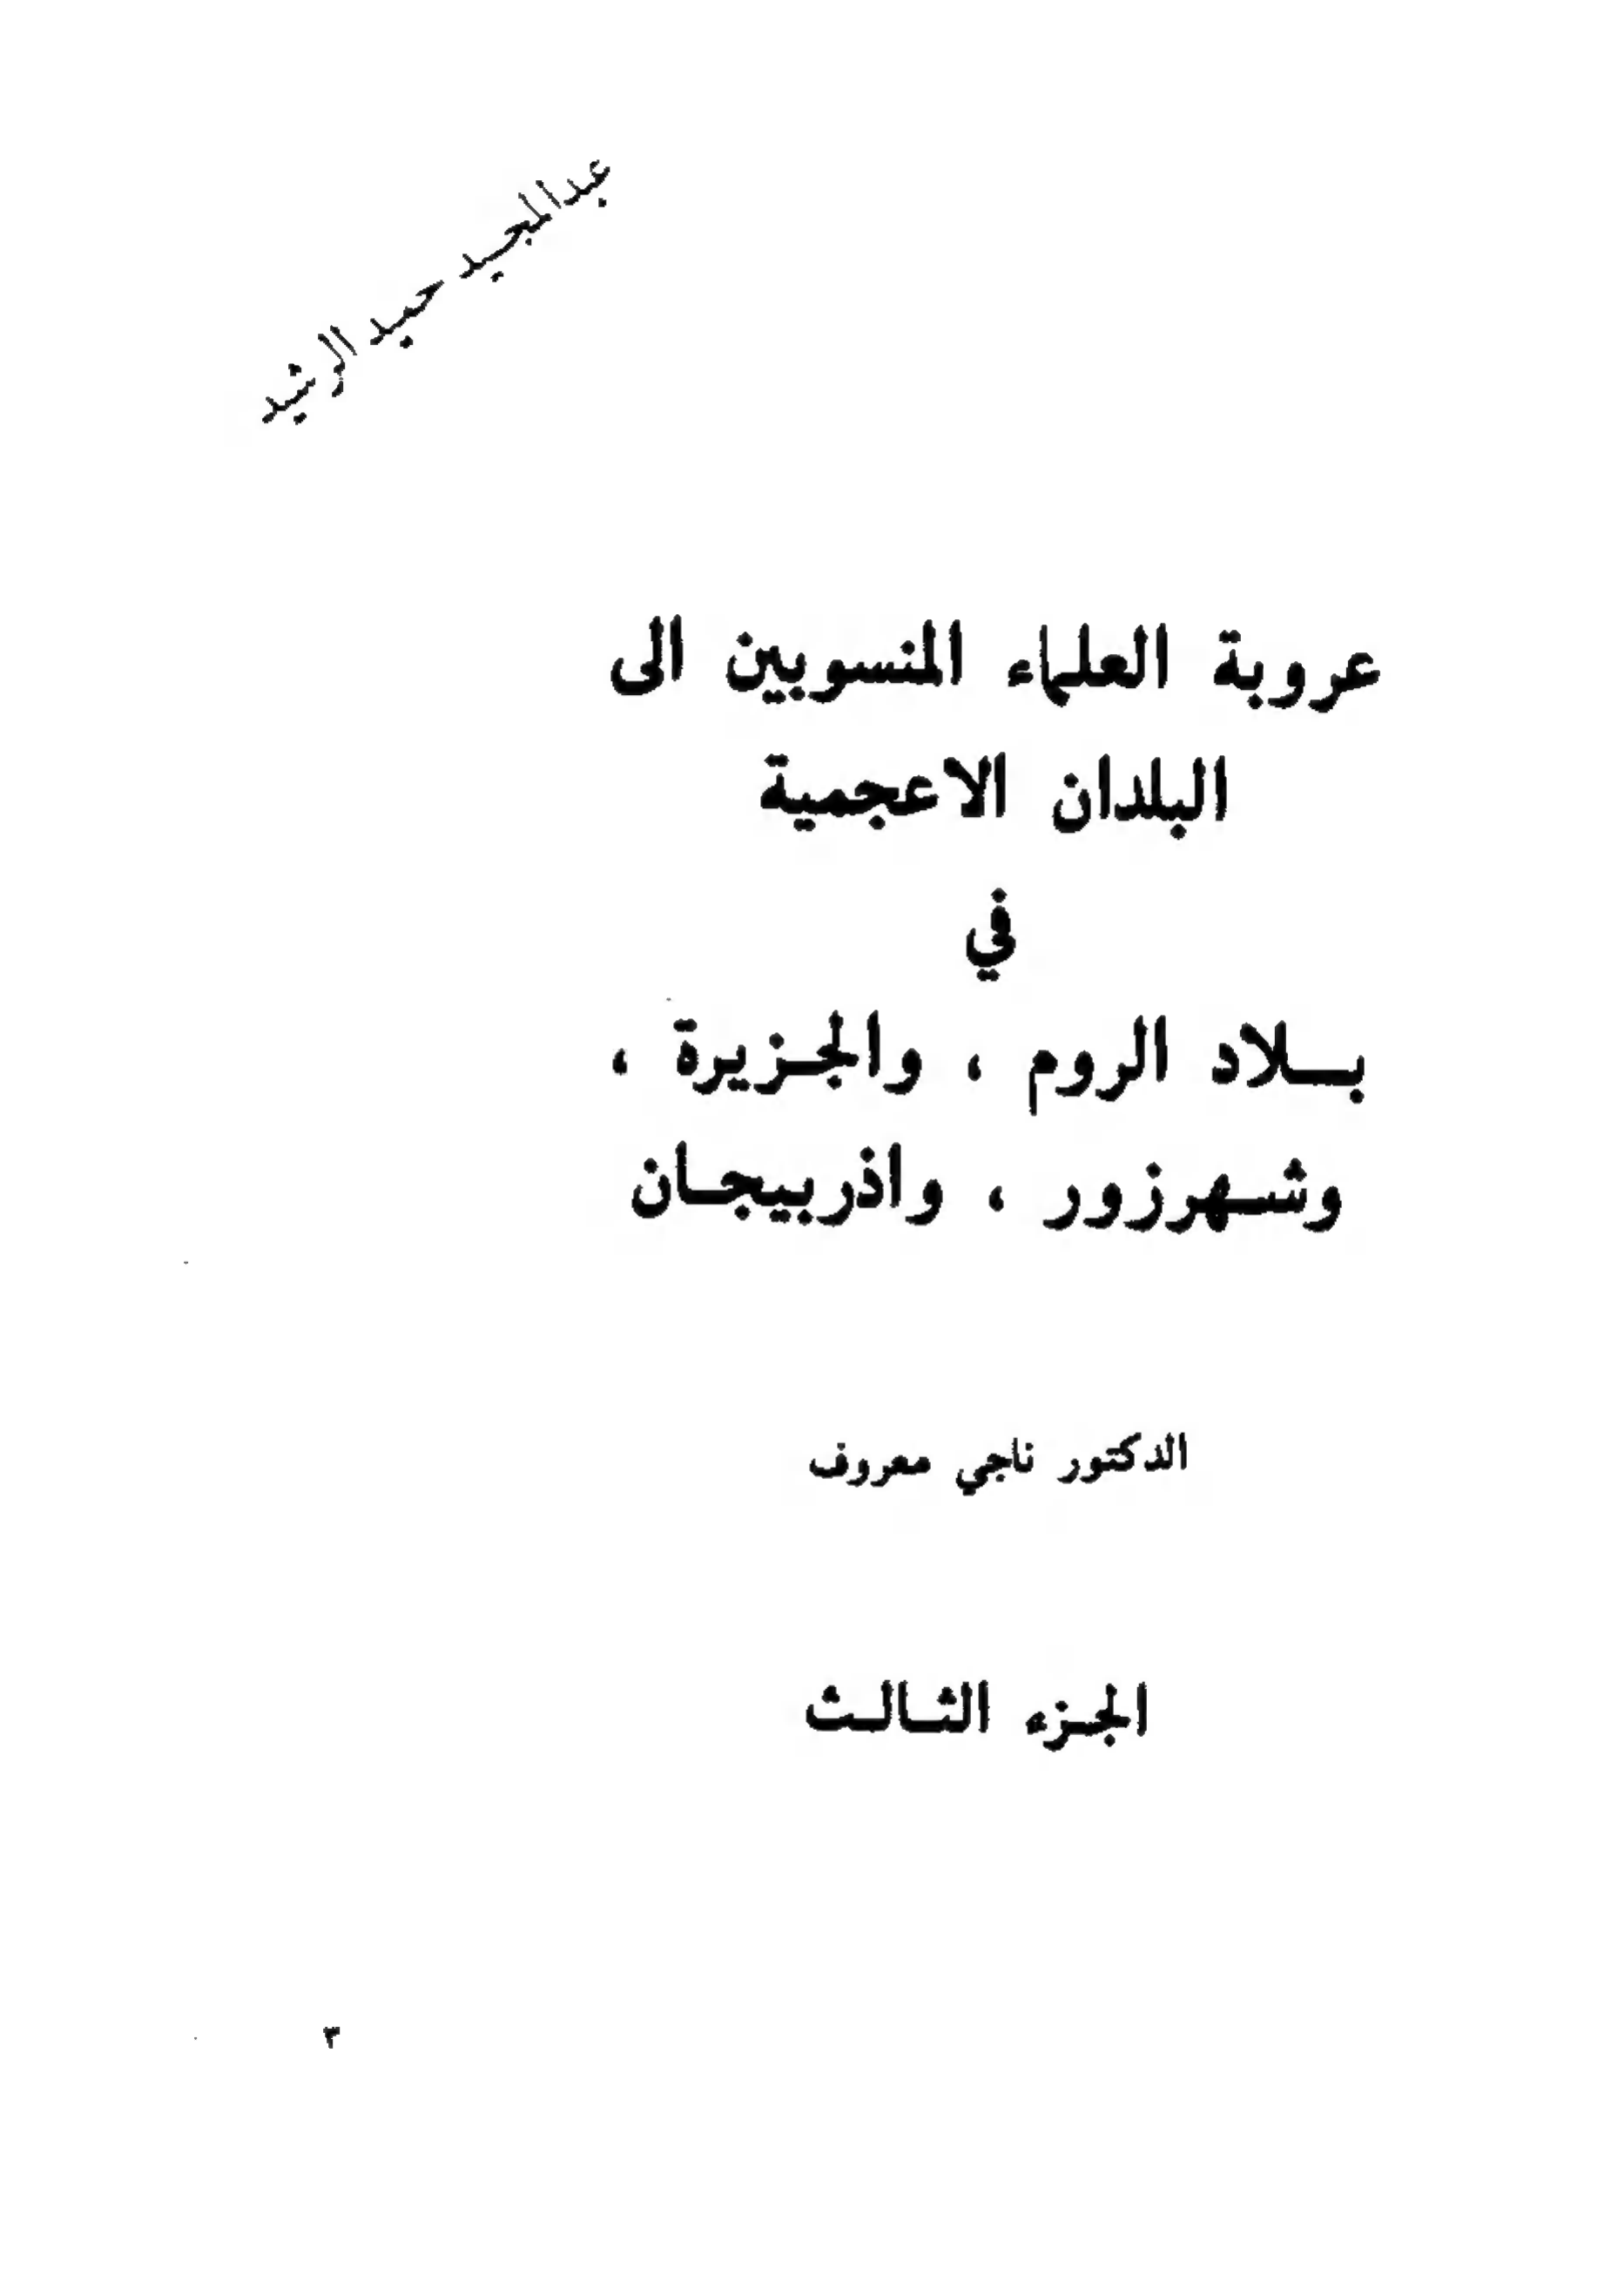 عبدالمجيد حميد الرشيد
عروبة العلماء المنسوبين الى
البلدان الاعجمية
في
بلاد الروم ، والجزيرة ،
وشهرزور ، واذربيجان
الدكتور ناجي معروف
الجزء الثالث
٣